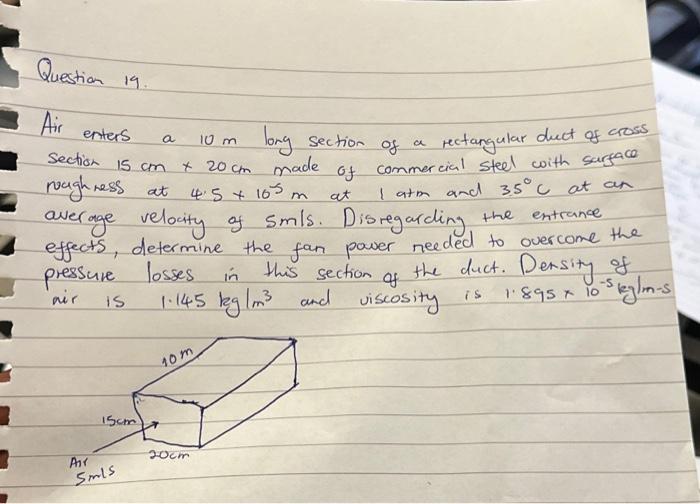 Question 19.
Air enters a 10 m long section of a rectangular duct of cross
section 15 cm x 20 cm made of commercial steel with surface
roughness at 4.5 x 10⁻⁵ m at 1 atm and 35°C at an
average velocity of 5m/s. Disregarding the entrance
effects, determine the fan power needed to overcome the
pressure losses in this section of the duct. Density of
air is 1.145 kg/m³ and viscosity is 1.895 x 10⁻⁵ kg/m-s
10m
15cm
20cm
Air
5m/s